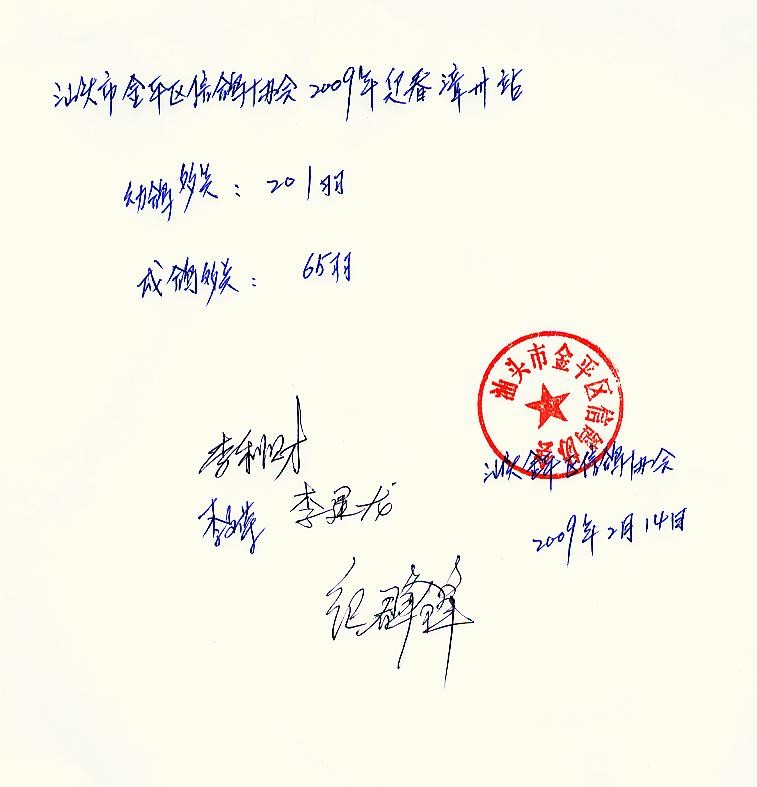 汕头市金平区信鸽协会2009年迎春漳州站
幼鸽总关：201羽
成鸽总关：65羽
汕头市金平区信鸽协会
李利财
汕头金平区信鸽协会
李运龙
2009年2月14日
纪群锋